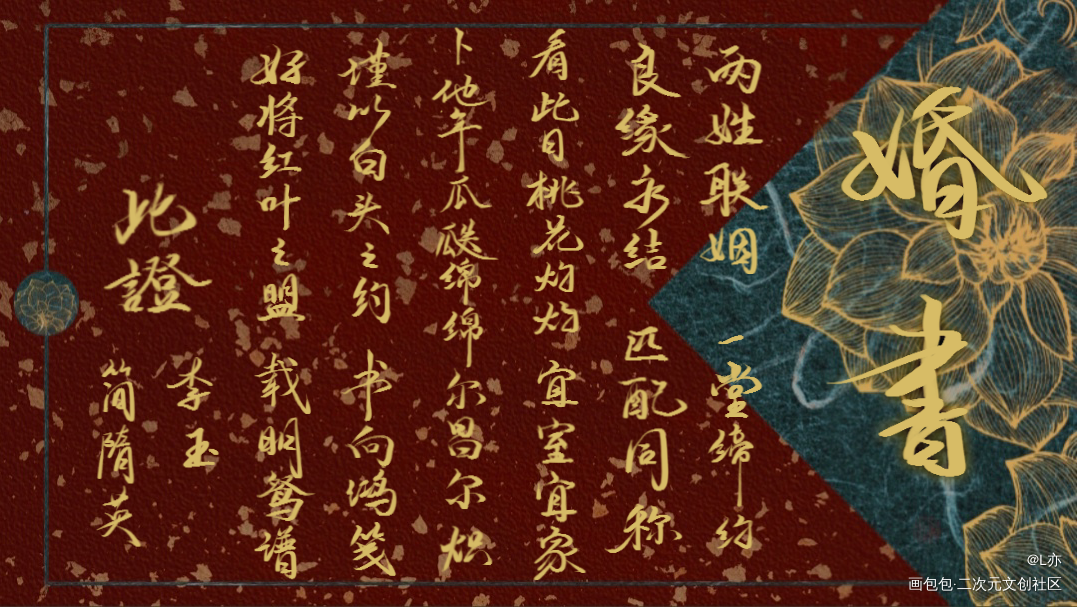 婚書
两姓联姻 一堂缔约
良缘永结 匹配同称
看此日桃花灼灼 宜室宜家
卜他年瓜瓞绵绵 尔昌尔炽
谨以白头之约 书向鸿笺
好将红叶之盟 载明鸳谱
此證
李玉
简隋英
@L亦
画包包·二次元文创社区